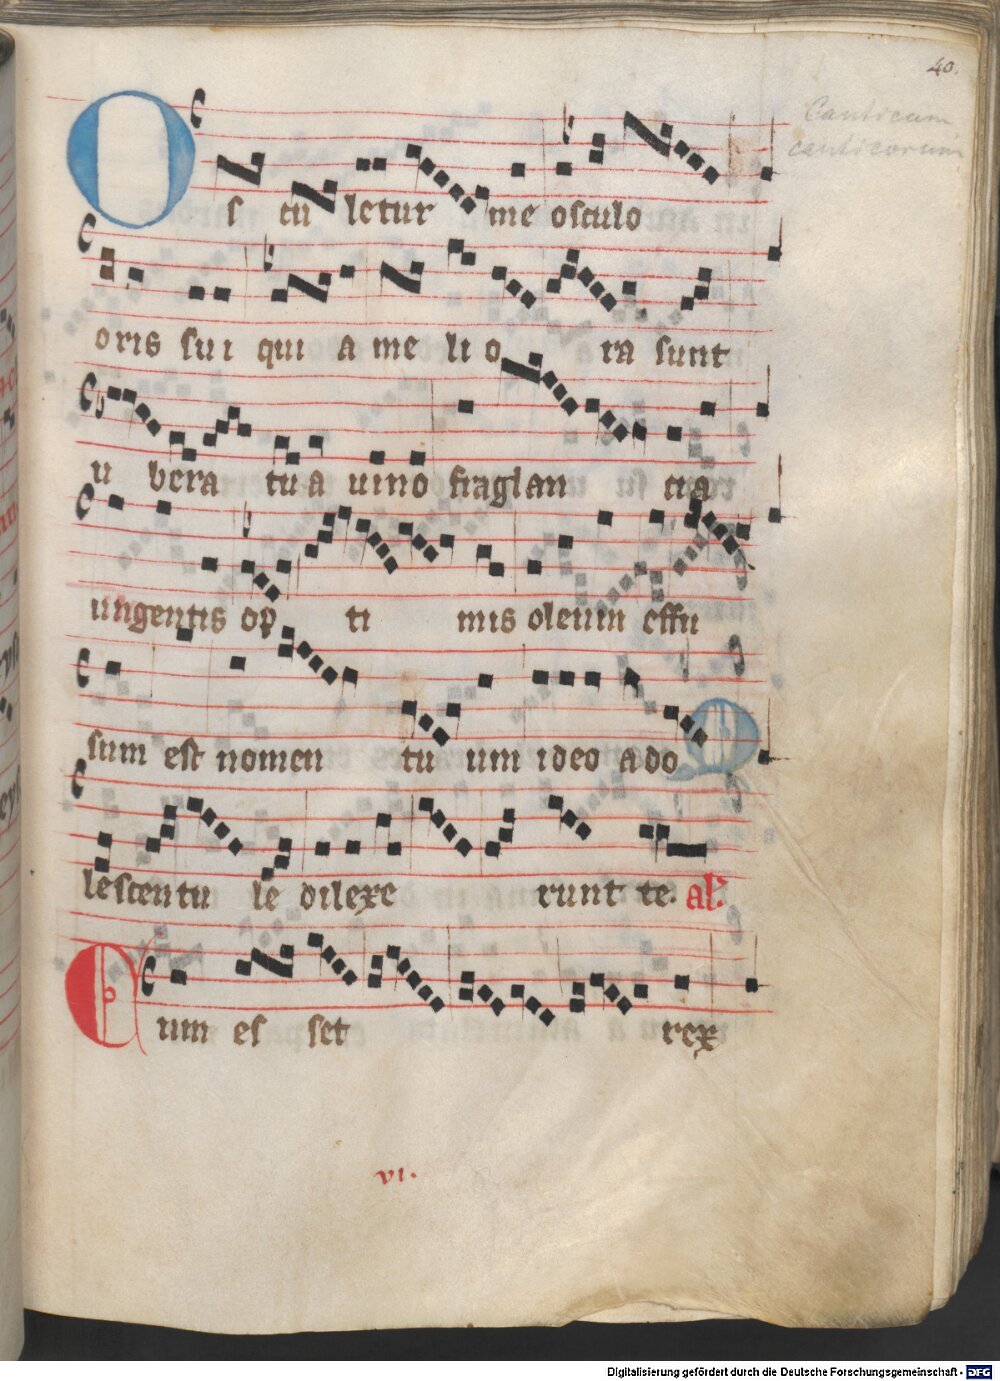 40.
Canticum
canticorum
Os cu letur me osculo
oris sui qui a me li o ra sunt
u bera tu a uino fraglan tia
ungentis op ti mis oleum effu
sum est nomen tu um ideo ado
lescentu le dilexe runt te. al'.
Cum es set rex
vi.
Digitalisierung gefördert durch die Deutsche Forschungsgemeinschaft - DFG